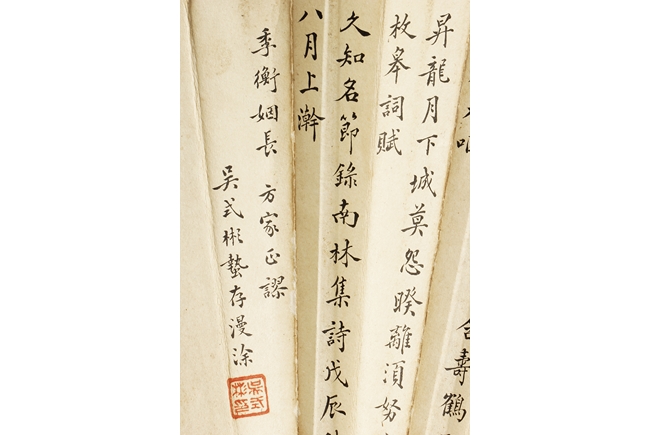 合壽鶴
昇龍月下城莫怨暌離須努
枚皋詞賦
久知名節錄南林集詩戊辰
八月上澣
季衡姻長 方家正謬
吳式彬蟄存漫涂
吳式彬印